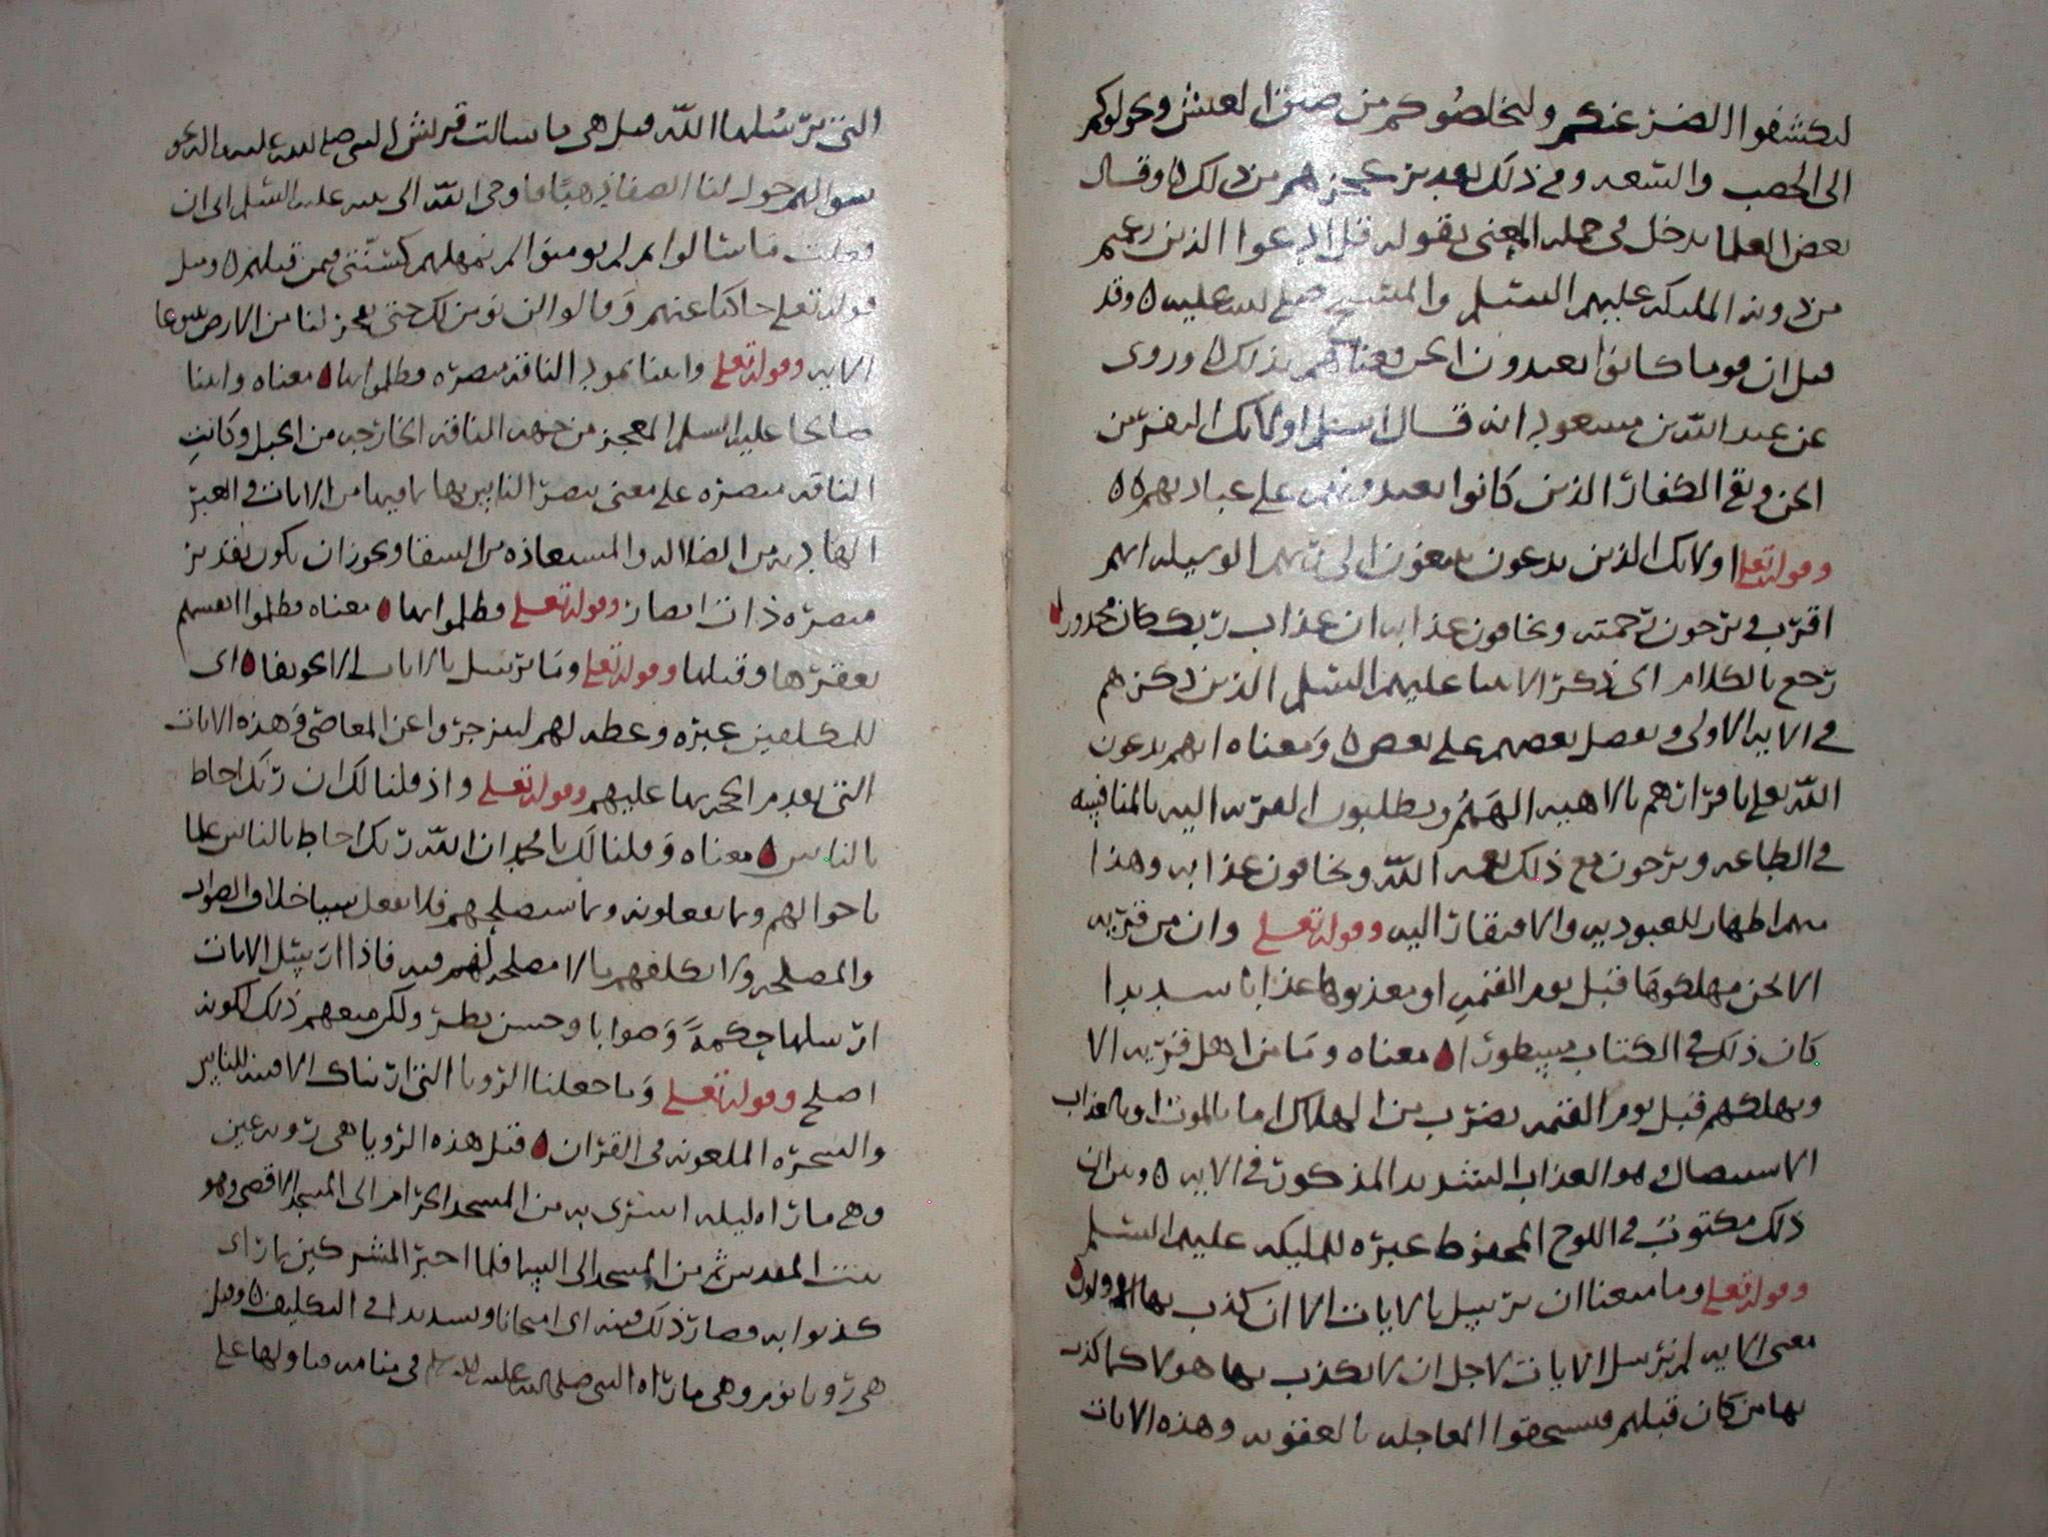 ليكشفوا الضر عنكم وليخلصوكم من ضيق العيش ويحولوكم
الى الخصب والسعه وفي ذلك تعديز عجزهم من ذلك ه وقال
بعض العلما يدخل في جمله المعنى بقوله قل ادعوا الذين زعمتم
من دونه الملىكه عليهم السلم والمسيح صلى الله عليه ه وقد
قيل ان قوما كانوا يعبدون الجن فعناهم بذلك ه وروى
عن عبد الله بن مسعود انه قال اسلم اولائك النفر من
الجن وبقي الكفار الذين كانوا يعبدونهم على عبادتهم ه ه
وقوله تعلى اولائك الذين يدعون يبتغون الى ربهم الوسيله ايهم
اقرب ويرجون رحمته ويخافون عذابه ان عذاب ربك كان محذورا
رجع بالكلام الى ذكر الانبيا عليهم السلم الذين ذكرهم
في الايه الاولى وفضل بعضهم على بعض ه ومعناه انهم يدعون
الله تعلى باقرارهم بالاهيه الههم ويطلبون القربه اليه بالمنافسه
في الطاعه ويرجون مع ذلك نعمه الله ويخافون عذابه وهذا
منهم اظهار للعبوديه والافتقار اليه وقوله تعلى وان من قريه
الا نحن مهلكوها قبل يوم القيمه او معذبوها عذابا شديدا
كان ذلك في الكتاب مسطورا ه معناه وما من اهل قريه الا
ويهلكهم قبل يوم القيمه بضرب من الهلاك اما بالموت او بالعذاب
الاستيصال وهو العذاب الشديد المذكور في الايه ه وقيل ان
ذلك مكتوب في اللوح المحفوظ عبره للمليكه عليهم السلم
وقوله تعلى وما منعنا ان نرسل بالايات الا ان كذب بها الاولون
معنى الايه لم نرسل الايات لاجل ان لا يكذب بها هولا كما كذب
بها من كان قبلهم فيستحقوا المعاجله بالعقوبه وهذه الايات
التي نرسلها الله قيل هي ما سالت قريش النبي صلى الله عليه واله نحو
سوالهم حول لنا الصفا ذهبا فاوحى الله الى نبيه عليه السلم الى ان
فعلت ما سالوا ثم لم يومنوا لم نمهلهم كسنتي فيمن قبلهم ه وقيل
قوله تعلى حاكيا عنهم وقالوا لن نومن لك حتى تفجر لنا من الارض ينبوعا
الايه وقوله تعلى واتينا ثمود الناقه مبصره فظلموا بها ه معناه واتينا
صالحا عليه السلم المعجز من جهه الناقه الخارجه من الجبل وكانت
الناقه مبصره على معنى يبصر الناس بها بما فيها من الايات والعبر
الهاديه من الضلاله والمستعاذه من الشقا ويجوز ان يكون تقدير
مبصره ذات ابصار وقوله تعلى فظلموا بها ه معناه فظلموا انفسهم
بعقرها وقتلها وقوله تعلى وما نرسل بالايات الا تخويفا ه اى
للمكلفين عبره وعظه لهم لينزجروا عن المعاصي وهذه الايات
التي تقدم الحجه بها عليهم وقوله تعلى واذ قلنا لك ان ربك احاط
بالناس ه معناه وقلنا لك يا محمد ان الله ربك احاط بالناس علما
باحوالهم وبما يفعلونه وبما يستصلحهم فلا يفعل شيا خلاف الصواب
والمصلحه ولا يكلفهم بالا مصلحه لهم فيه فاذا ارسل الايات
ارسلها حكمة وصوابا وحسن نظر ولكن منعهم ذلك لكونه
اصلح وقوله تعلى وما جعلنا الرويا التي اريناك الا فتنه للناس
والشجره الملعونه في القران ه قيل هذه الرويا هي رويه عين
وهي ما راه ليله اسرى به من المسجد الحرام الى المسجد الاقصى وهو
بيت المقدس ثم من المسجد الى السما فلما اخبر المشركين بما راى
كذبوا به فصار ذلك فتنه اى امتحانا وتشديدا في التكليف ه وقيل
هي رويا نوم وهي ما راه النبي صلى الله عليه وسلم في منامه فتاولها على